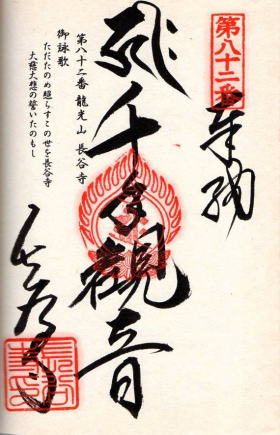 第八十二番
奉納
千手観音
長谷寺
第八十二番 龍光山 長谷寺
御詠歌
ただたのめ照らすこの世を長谷寺
大慈大悲の誓いたのもし